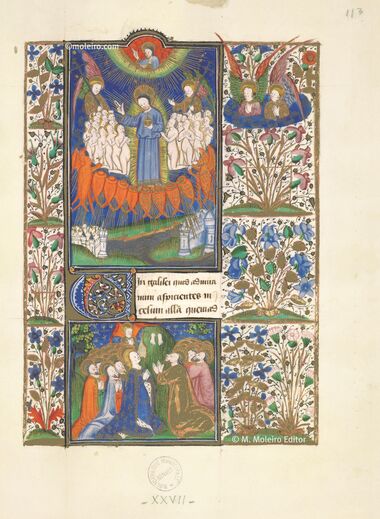 113
©moleiro.com
Viri galilei quid admira
mini aspicientes in
celum alla quemad
© M. Moleiro Editor
- XXVII -